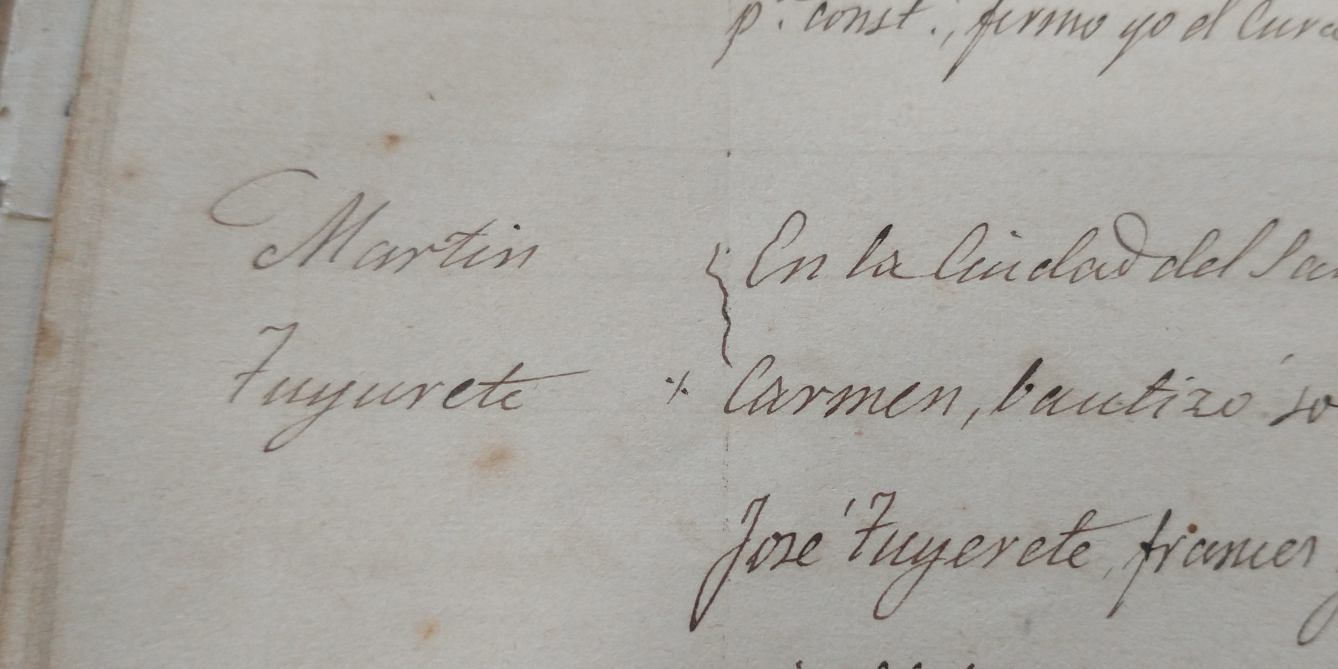 p.ª const.ª, firmo yo el Cura
Martin
Fuyurete
En la Ciudad del Sa
Carmen, bautizó so
José Fuyerete, frances y